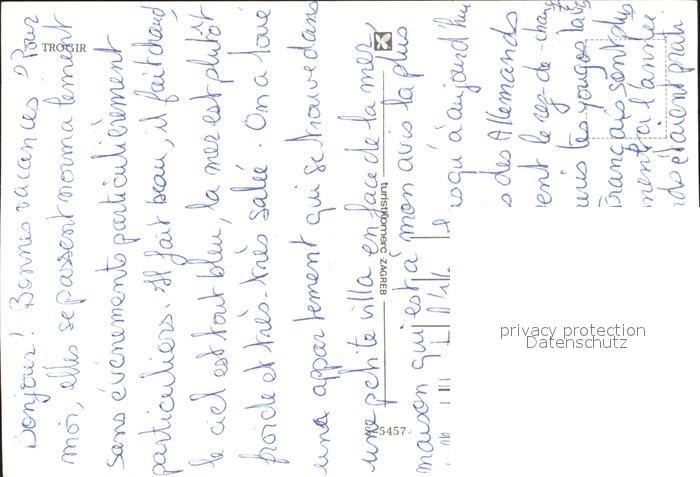 Bonjour! Bonnes vacances? Pour
moi, elles se passent normalement
sans événements particulièrement
particuliers. Il fait beau, il fait chaud
le ciel est tout bleu, la mer est plutôt
froide et très-très salée. On a loué
une appartement qui se trouve dans
une petite villa en face de la mer
maison qui est à mon avis la plus
jusqu'à aujourd'hui
des Allemands
ent le rez-de-chau
uis les yougos
Français sont plus
ment, ici l'année
ds étaient prati
TROGIR
turistkomerc ZAGREB
5457
privacy protection
Datenschutz